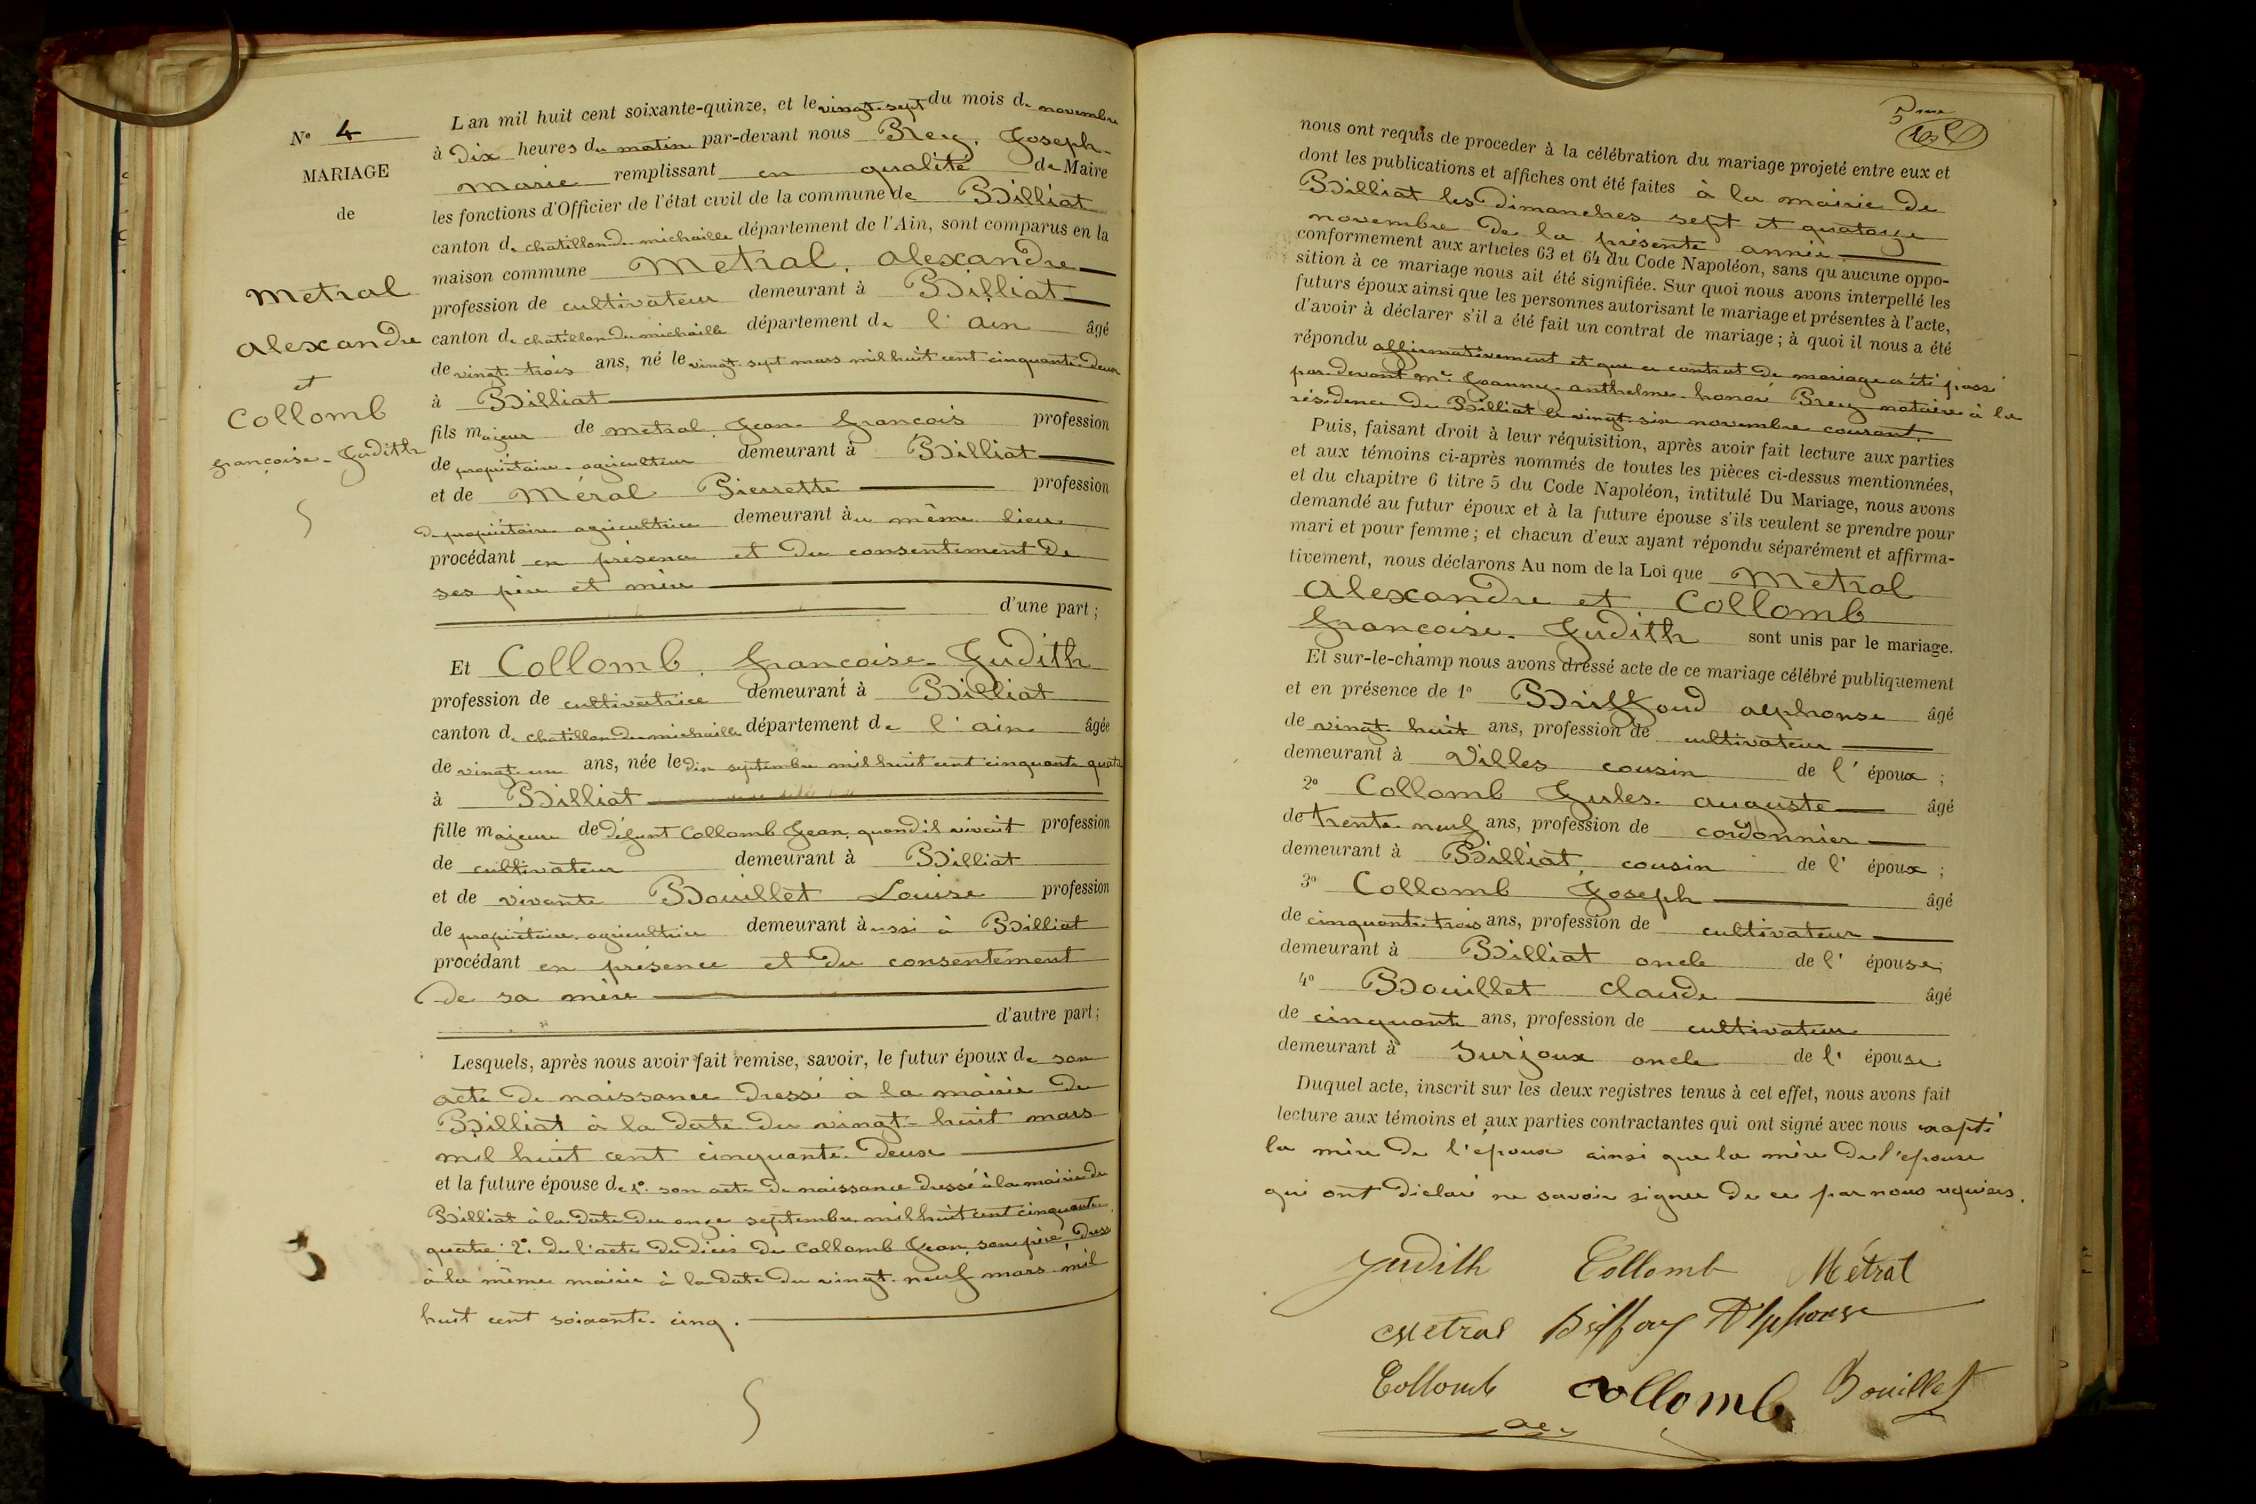 N° 4
MARIAGE
de
Metral
alexandre
et
Collomb
françoise-Judith
L'an mil huit cent soixante-quinze, et le vingt-sept du mois de novembre
à Dix heures du matin par-devant nous Prey, Joseph-
Marie remplissant en qualité de Maire
les fonctions d'Officier de l'état civil de la commune de Billiat
canton de chatillon de michaille département de l'Ain, sont comparus en la
maison commune Metral, alexandre
profession de cultivateur demeurant à Billiat
canton de chatillon de michaille département de l'ain âgé
de vingt-trois ans, né le vingt-sept mars mil huit cent cinquante-deux
à Billiat
fils majeur de metral, Jean-françois profession
de propriétaire-agriculteur demeurant à Billiat
et de Méral Pierrette profession
de propriétaire agricultrice demeurant au même lieu
procédant en présence et du consentement de
ses père et mère
d'une part;
Et Collomb, françoise-Judith
profession de cultivatrice demeurant à Billiat
canton de chatillon de michaille département de l'ain âgée
de vingt-un ans, née le dix septembre mil huit cent cinquante quatre
à Billiat
fille majeure de défunt Collomb Jean, quand il vivait profession
de cultivateur demeurant à Billiat
et de vivante Bouillet Louise profession
de propriétaire-agricultrice demeurant aussi à Billiat
procédant en présence et du consentement
de sa mère
d'autre part;
Lesquels, après nous avoir fait remise, savoir, le futur époux de son
acte de naissance dressé à la mairie de
Billiat à la date du vingt-huit mars
mil huit cent cinquante-deux
et la future épouse de 1° son acte de naissance dressé à la mairie de
Billiat à la date du onze septembre mil huit cent cinquante
quatre 2° de l'acte de décès de Collomb Jean, son père, dressé
à la même mairie à la date du vingt-neuf mars mil
huit cent soixante-cinq.
5me
nous ont requis de procéder à la célébration du mariage projeté entre eux et
dont les publications et affiches ont été faites à la mairie de
Billiat les dimanches sept et quatorze
novembre de la présente année
conformément aux articles 63 et 64 du Code Napoléon, sans qu'aucune oppo-
sition à ce mariage nous ait été signifiée. Sur quoi nous avons interpellé les
futurs époux ainsi que les personnes autorisant le mariage et présentes à l'acte,
d'avoir à déclarer s'il a été fait un contrat de mariage; à quoi il nous a été
répondu affirmativement et que ce contrat de mariage a été passé
par-devant Me Joanny-anthelme-honoré Prey notaire à la
résidence de Billiat le vingt-six novembre courant.
Puis, faisant droit à leur réquisition, après avoir fait lecture aux parties
et aux témoins ci-après nommés de toutes les pièces ci-dessus mentionnées,
et du chapitre 6 titre 5 du Code Napoléon, intitulé Du Mariage, nous avons
demandé au futur époux et à la future épouse s'ils veulent se prendre pour
mari et pour femme; et chacun d'eux ayant répondu séparément et affirma-
tivement, nous déclarons Au nom de la Loi que Metral
Alexandre et Collomb
françoise-Judith sont unis par le mariage.
Et sur-le-champ nous avons dressé acte de ce mariage célébré publiquement
et en présence de 1° Briffoud alphonse âgé
de vingt-huit ans, profession de cultivateur
demeurant à Villes cousin de l'époux;
2° Collomb Jules-auguste âgé
de trente-neuf ans, profession de cordonnier
demeurant à Billiat, cousin de l'époux;
3° Collomb Joseph âgé
de cinquante-trois ans, profession de cultivateur
demeurant à Billiat oncle de l'épouse
4° Bouillet claude âgé
de cinquante ans, profession de cultivateur
demeurant à Surjoux oncle de l'épouse
Duquel acte, inscrit sur les deux registres tenus à cet effet, nous avons fait
lecture aux témoins et aux parties contractantes qui ont signé avec nous excepté
la mère de l'époux ainsi que la mère de l'épouse
qui ont déclaré ne savoir signer de ce par nous requises.
Judith Collomb Métral
Metral Briffoud Alphonse
Collomb collomb Bouillet